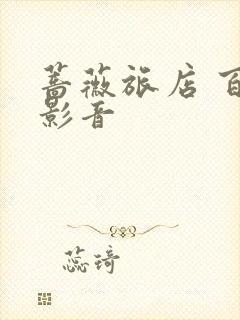 蔷薇旅店 百
影音
蕊琦